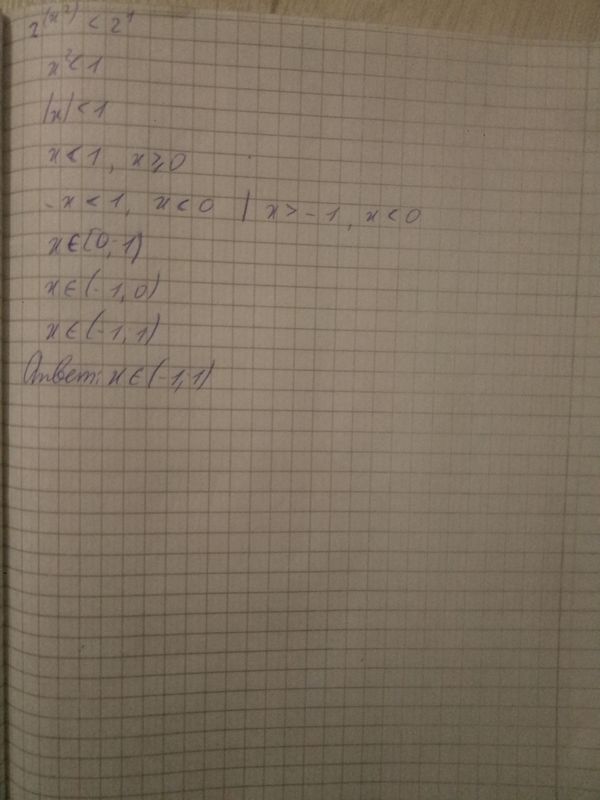 2^(x²) < 2¹
x² < 1
|x| < 1
x < 1, x ⩾ 0
-x < 1, x < 0 | x > -1, x < 0
x ∈ [0; 1)
x ∈ (-1, 0)
x ∈ (-1, 1)
Ответ: x ∈ (-1, 1)